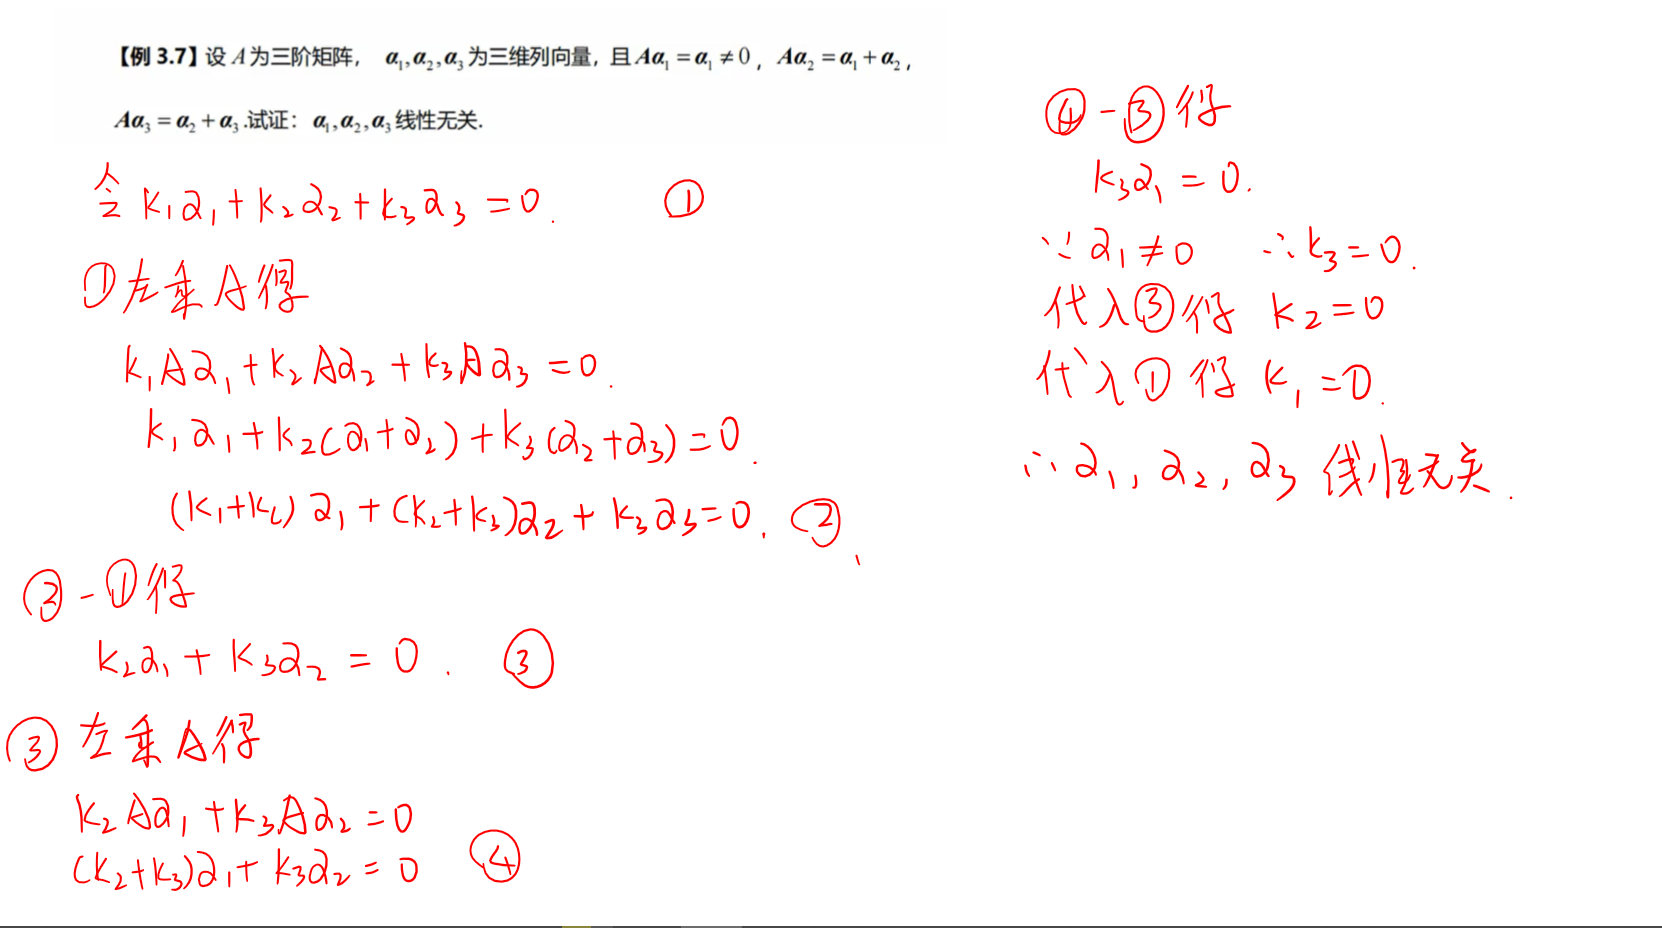 【例 3.7】设 A 为三阶矩阵， α₁,α₂,α₃ 为三维列向量，且 Aα₁ = α₁ ≠ 0，Aα₂ = α₁ + α₂，
Aα₃ = α₂ + α₃.试证：α₁,α₂,α₃ 线性无关.
令 k₁α₁ + k₂α₂ + k₃α₃ = 0. ①
①左乘A得
k₁Aα₁ + k₂Aα₂ + k₃Aα₃ = 0.
k₁α₁ + k₂(α₁+α₂) + k₃(α₂+α₃) = 0.
(k₁+k₂)α₁ + (k₂+k₃)α₂ + k₃α₃ = 0. ②
② - ①得
k₂α₁ + k₃α₂ = 0. ③
③ 左乘A得
k₂Aα₁ + k₃Aα₂ = 0
(k₂+k₃)α₁ + k₃α₂ = 0 ④
④ - ③ 得
k₃α₁ = 0.
∵ α₁ ≠ 0 ∴ k₃ = 0.
代入③得 k₂ = 0
代入①得 k₁ = 0.
∴ α₁, α₂, α₃ 线性无关.